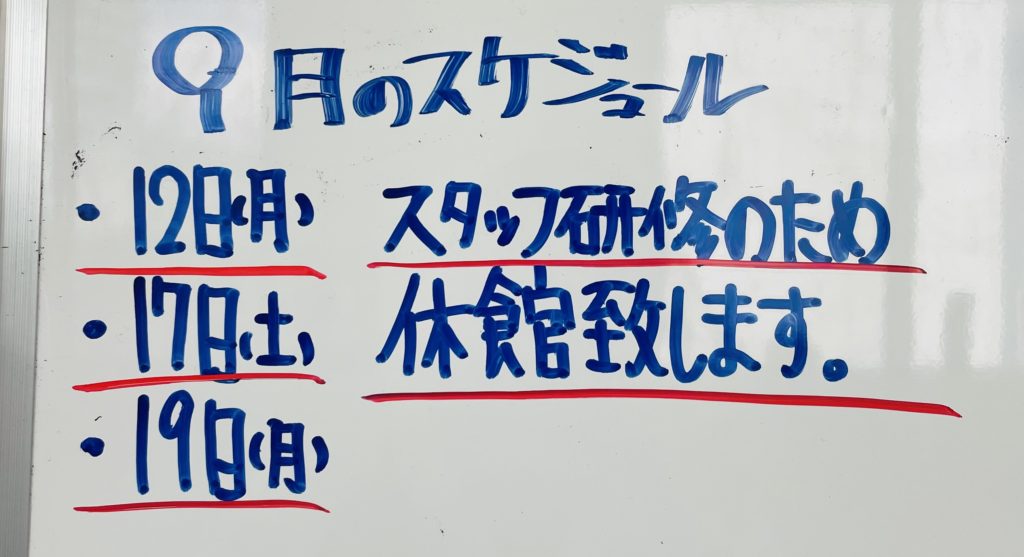 9月のスケジュール
・12日(月)
・17日(土)
・19日(月)
スタッフ研修のため
休館致します。